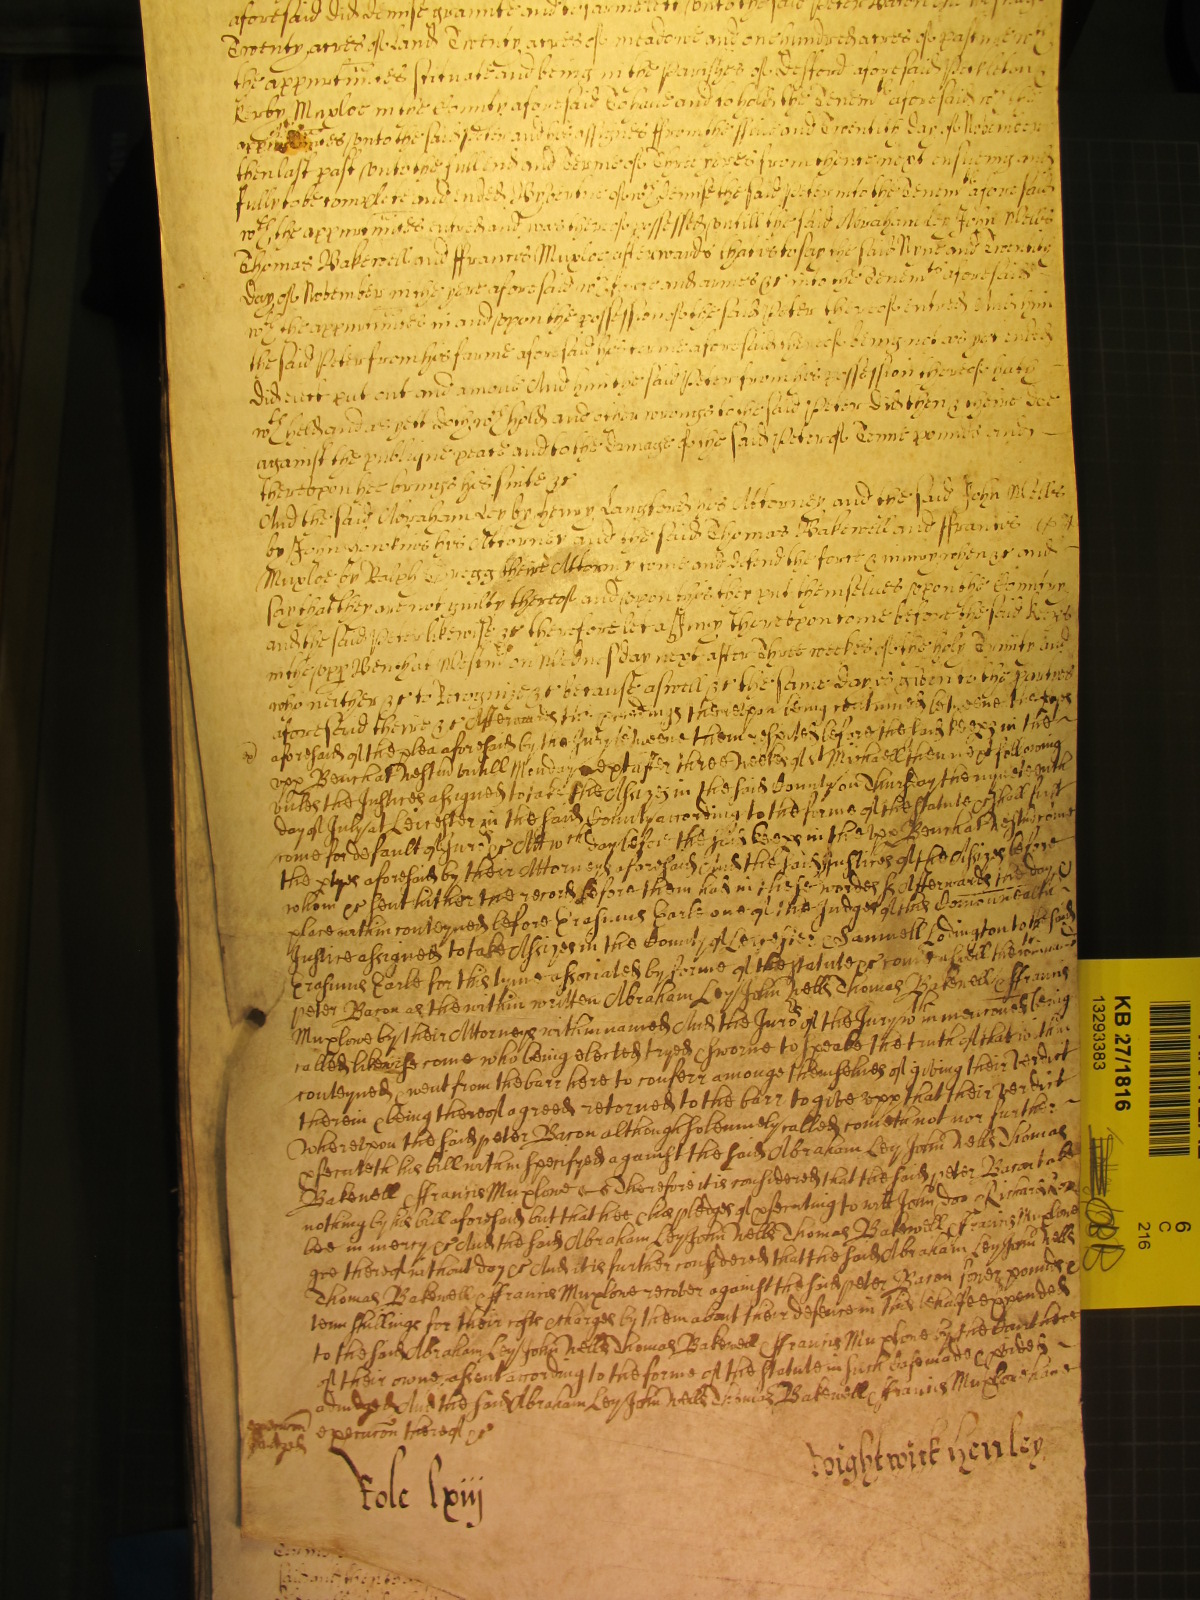 aforesaid did demise graunte and to farme lett unto the said Peter Bacon
Twenty acres of Land Twenty acres of meadowe and one hundred acres of pasture wth
the appurtnnces scituate and being in the Parishes of Desford aforesaid Peckleton
Kirby Muxloe in the County aforesaid To have and to hold the Tenemts aforesaid wth the
appurtnnces unto the said Peter and his assignes from the Nine and Twentith day of November
then last past unto the full end and Terme of Three yeres from thence next ensueing and
fully to be complete and ended By vertue of wch demise the said Peter into the Tenemts aforesaid
wth the appurtnnces entred and was thereof possessed untill the said Abraham Ley John Wells
Thomas Bakewell and ffrancis Muxloe afterwards that is to say the said Nyne and Twentith
day of November in the yere aforesaid wth force and armes &c into the Tenemts aforesaid
wth the appurtnnces in and upon the possession of the said Peter thereof entred And him
the said Peter from his farme aforesaid his terme aforesaid thereof being not as yet ended
did eiect put out and amove And him the said Peter from his possession thereof have
wth held and as yett doth wth hold and other wrongs to the said Peter did then & there doe
against the publique peace and to the damage of the said Peter of Tenne pounds and
thereupon hee brings his suite &c
And the said Abraham Ley by Henry Langford his Attorney and the said John Wells
by John Hawkins his Attorney and the said Thomas Bakewell and ffrancis
Muxloe by Ralph Gregg theire Attorny come and defend the force & iniury when &c and
say that they are not guilty thereof and upon this they put themselves upon the Country
and the said Peter likewise &c therefore let a Jury thereupon come before the said Keeps
in the upp Bench at Westmr on Wednesday next after Three weekes of the Holy Trinity and
who neither &c to Recognize &c because aswell &c the same day is given to the parties
aforesaid there &c Afterwards the proceedings thereupon being continued betweene the ptyes
aforesaid of the plea aforesaid by the Jury betweene them respited before the said Keeps in the
upp Bench at Westm untill Monday next after three weekes of st Michaell then next following
unles the Justices assigned to take the Assizes in the said County on Thursday the nyneteenth
day of July at Leicester in the said County according to the forme of the statute &c shall first
come for default of Jurors &c Att wch day before the said Keeps in the upp Bench at Westm come
the ptyes aforesaid by their Attorneys aforesaid And the said Justices of the Assizes before
whom &c sent hither the record before them had in these wordes ss Afterwards the day &
place within conteyned before Erasmus Earle one of the Judges of this Comonwealth
Justice assigned to take Assizes in the County of Leicester Samuell Lodington to the said
Erasmus Earle for this tyme associated by forme of the statute &c come aswell the within named
Peter Bacon as the within written Abraham Ley John Wells Thomas Bakewell & ffrancis
Muxlowe by their Attorneys within named And the Jurors of the Jury wthin mencioned being
called likewise come who being elected tryed & sworne to speake the truth of that within
conteyned went from the barr here to conferr amonge themselves of giving their verdict
therein & being thereof agreed retorned to the barr to give upp that their verdict
Whereupon the said Peter Bacon although solemnely called cometh not nor further
psecuteth his bill within specifyed against the said Abraham Ley John Wells Thomas
Bakewell & ffrancis Muxlowe &c Therefore it is considered that the said Peter Bacon take
nothing by his bill aforesaid but that hee & his pledges of psecuting to witt John Doo & Richard Roo
bee in mercy &c And the said Abraham Ley John Wells Thomas Bakewell & ffrancis Muxlowe
goe thereof without day &c And it is further considered that the said Abraham Ley John Wells
Thomas Bakewell & ffrancis Muxlowe recover against the said Peter Bacon fower pounds &
tenn shillings for their costs & charges by them about their defence in this behalfe expended
to the said Abraham Ley John Wells Thomas Bakewell & ffrancis Muxlowe by the Court here
of their owne assent according to the forme of the statute in such case made & pvided
adiudged And the said Abraham Ley John Wells Thomas Bakewell & ffrancis Muxlowe have
execucon thereof &c
Wightwick Henley
Rolc lxiij
KB 27/1816
13293383
6
C
216